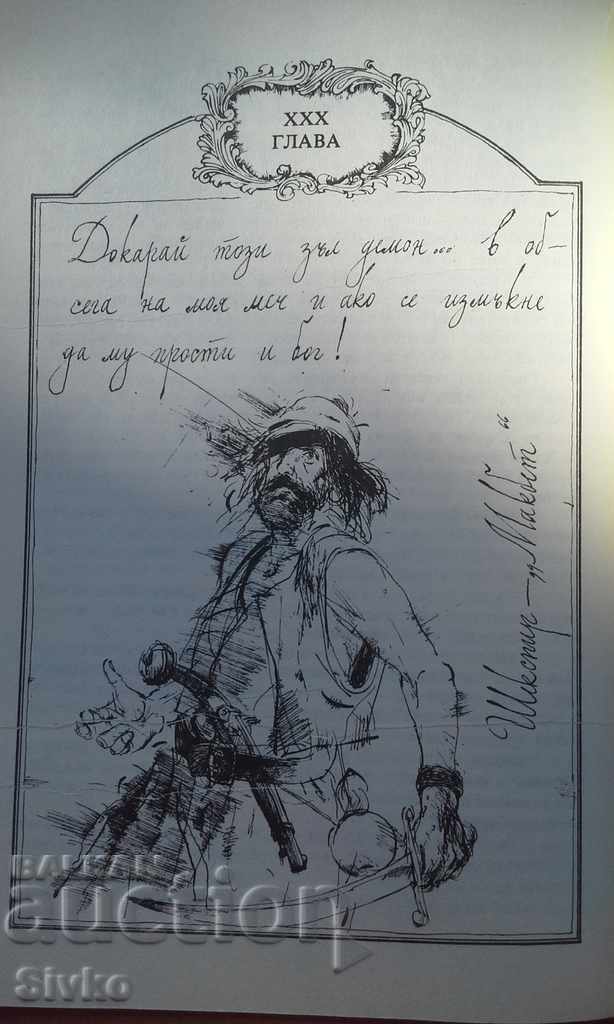 XXX
ГЛАВА
Докарай този зъл демон... в об-
сега на моя меч и ако се измъкне
да му прости и бог!
Шекспир – „Макбет“
BALKAN
auction
Sivko